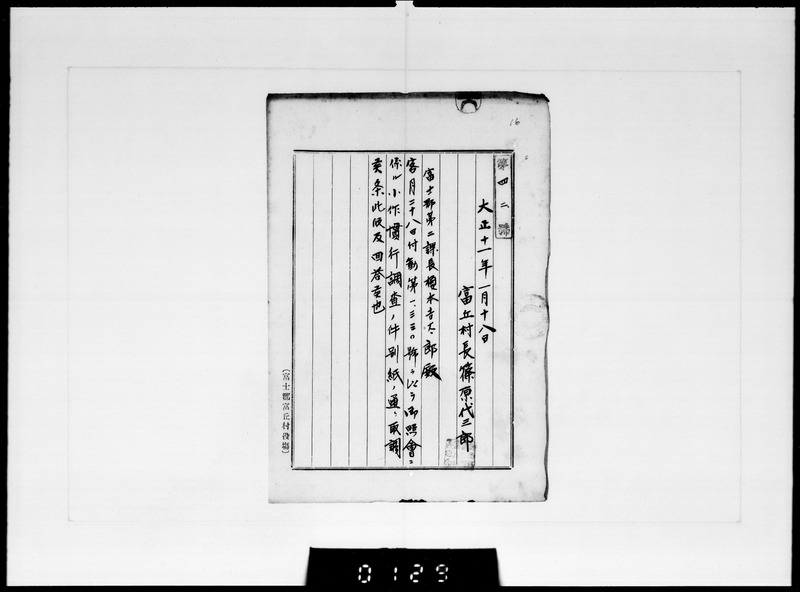 16
第四二號
大正十一年一月十八日
富丘村長篠原代三郎
富士郡第二課長 水吉太郎殿
客月二十八日付勧第一、三三〇號ヲ以テ御照會ニ
係ル小作慣行調査ノ件別紙ノ通リ取調
候条此段及回答候也
(富士郡富丘村役場)
0129